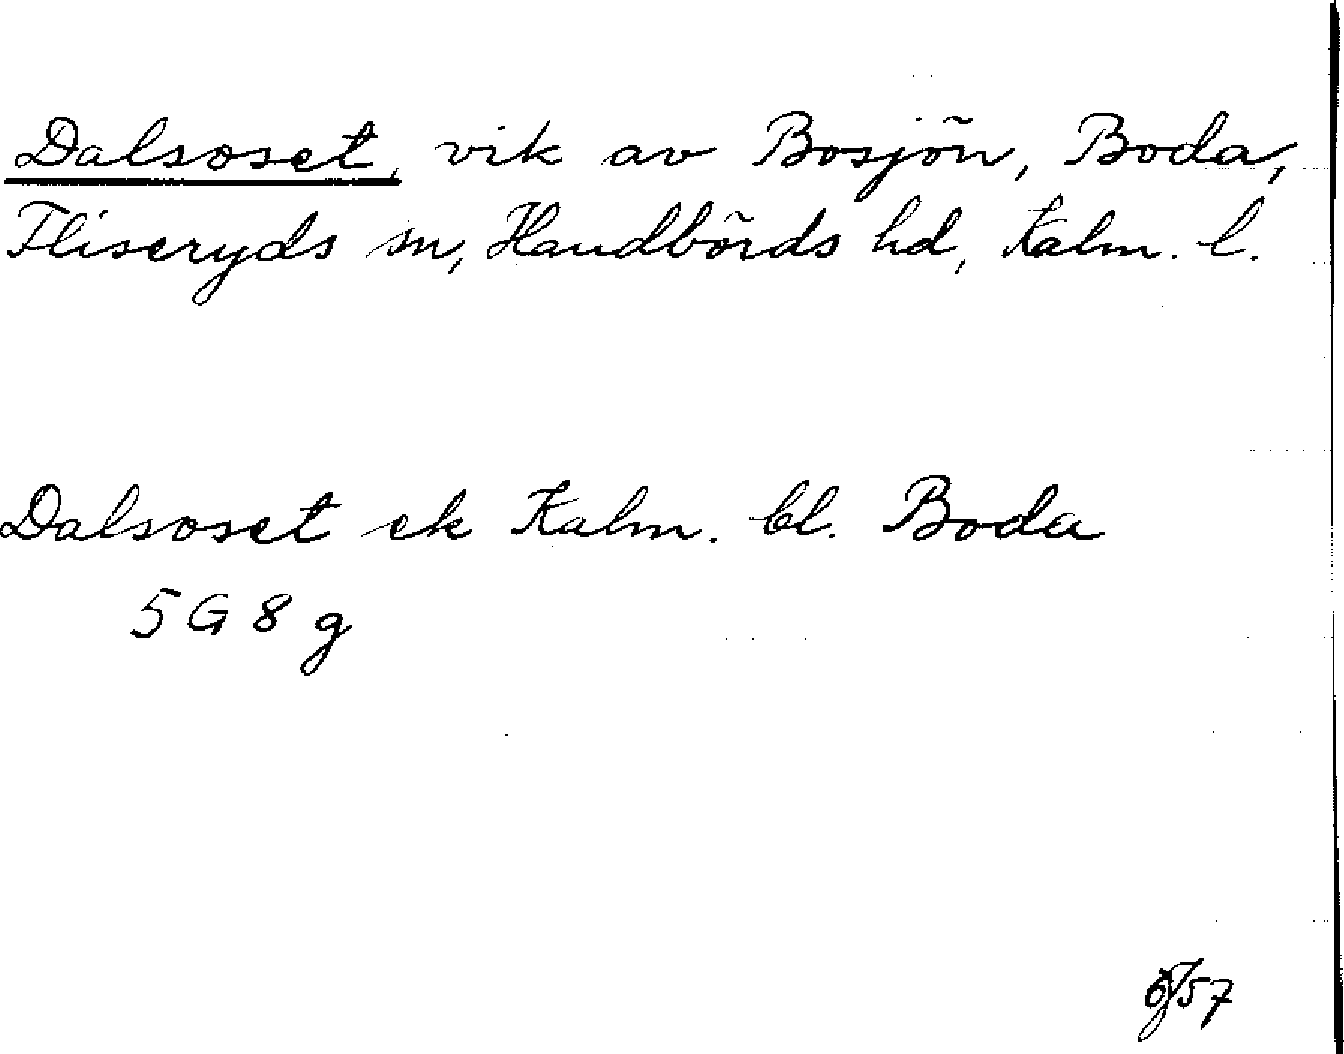 Dalsoset, vik av Bosjön, Boda,
Fliseryds sn, Handbörds hd, Kalm. l.
Dalsoset ek Kalm. bl. Boda
5 G 8 g